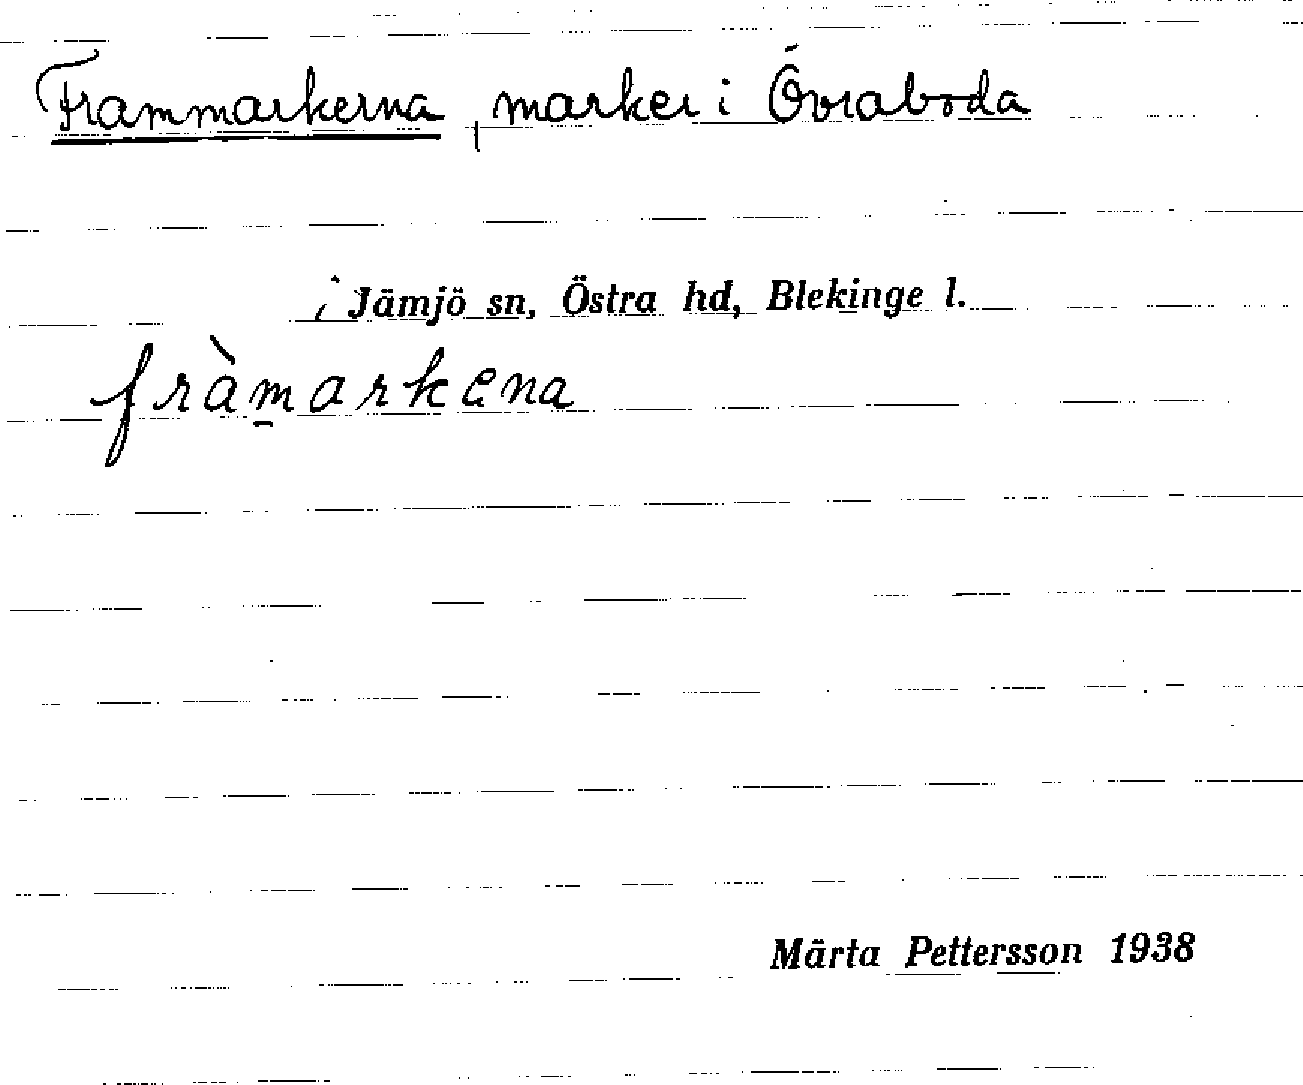 Frammarkerna, marker i Övraboda
i Jämjö sn, Östra hd, Blekinge l.
fràm̱arkena
Märta Pettersson 1938